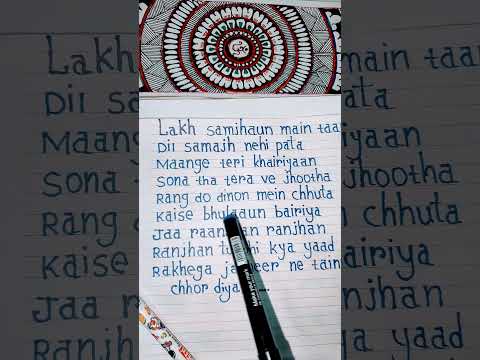 Lakh samjhaun main
Dil samajh nehi pata
Maange teri khairiyaan
Sona tha tera ve jhootha
Rang do dinon mein chhuta
Kaise bairiya
Jaa ranjhan
Ranjhan kya yaad
Rakhega ne tain
chhor